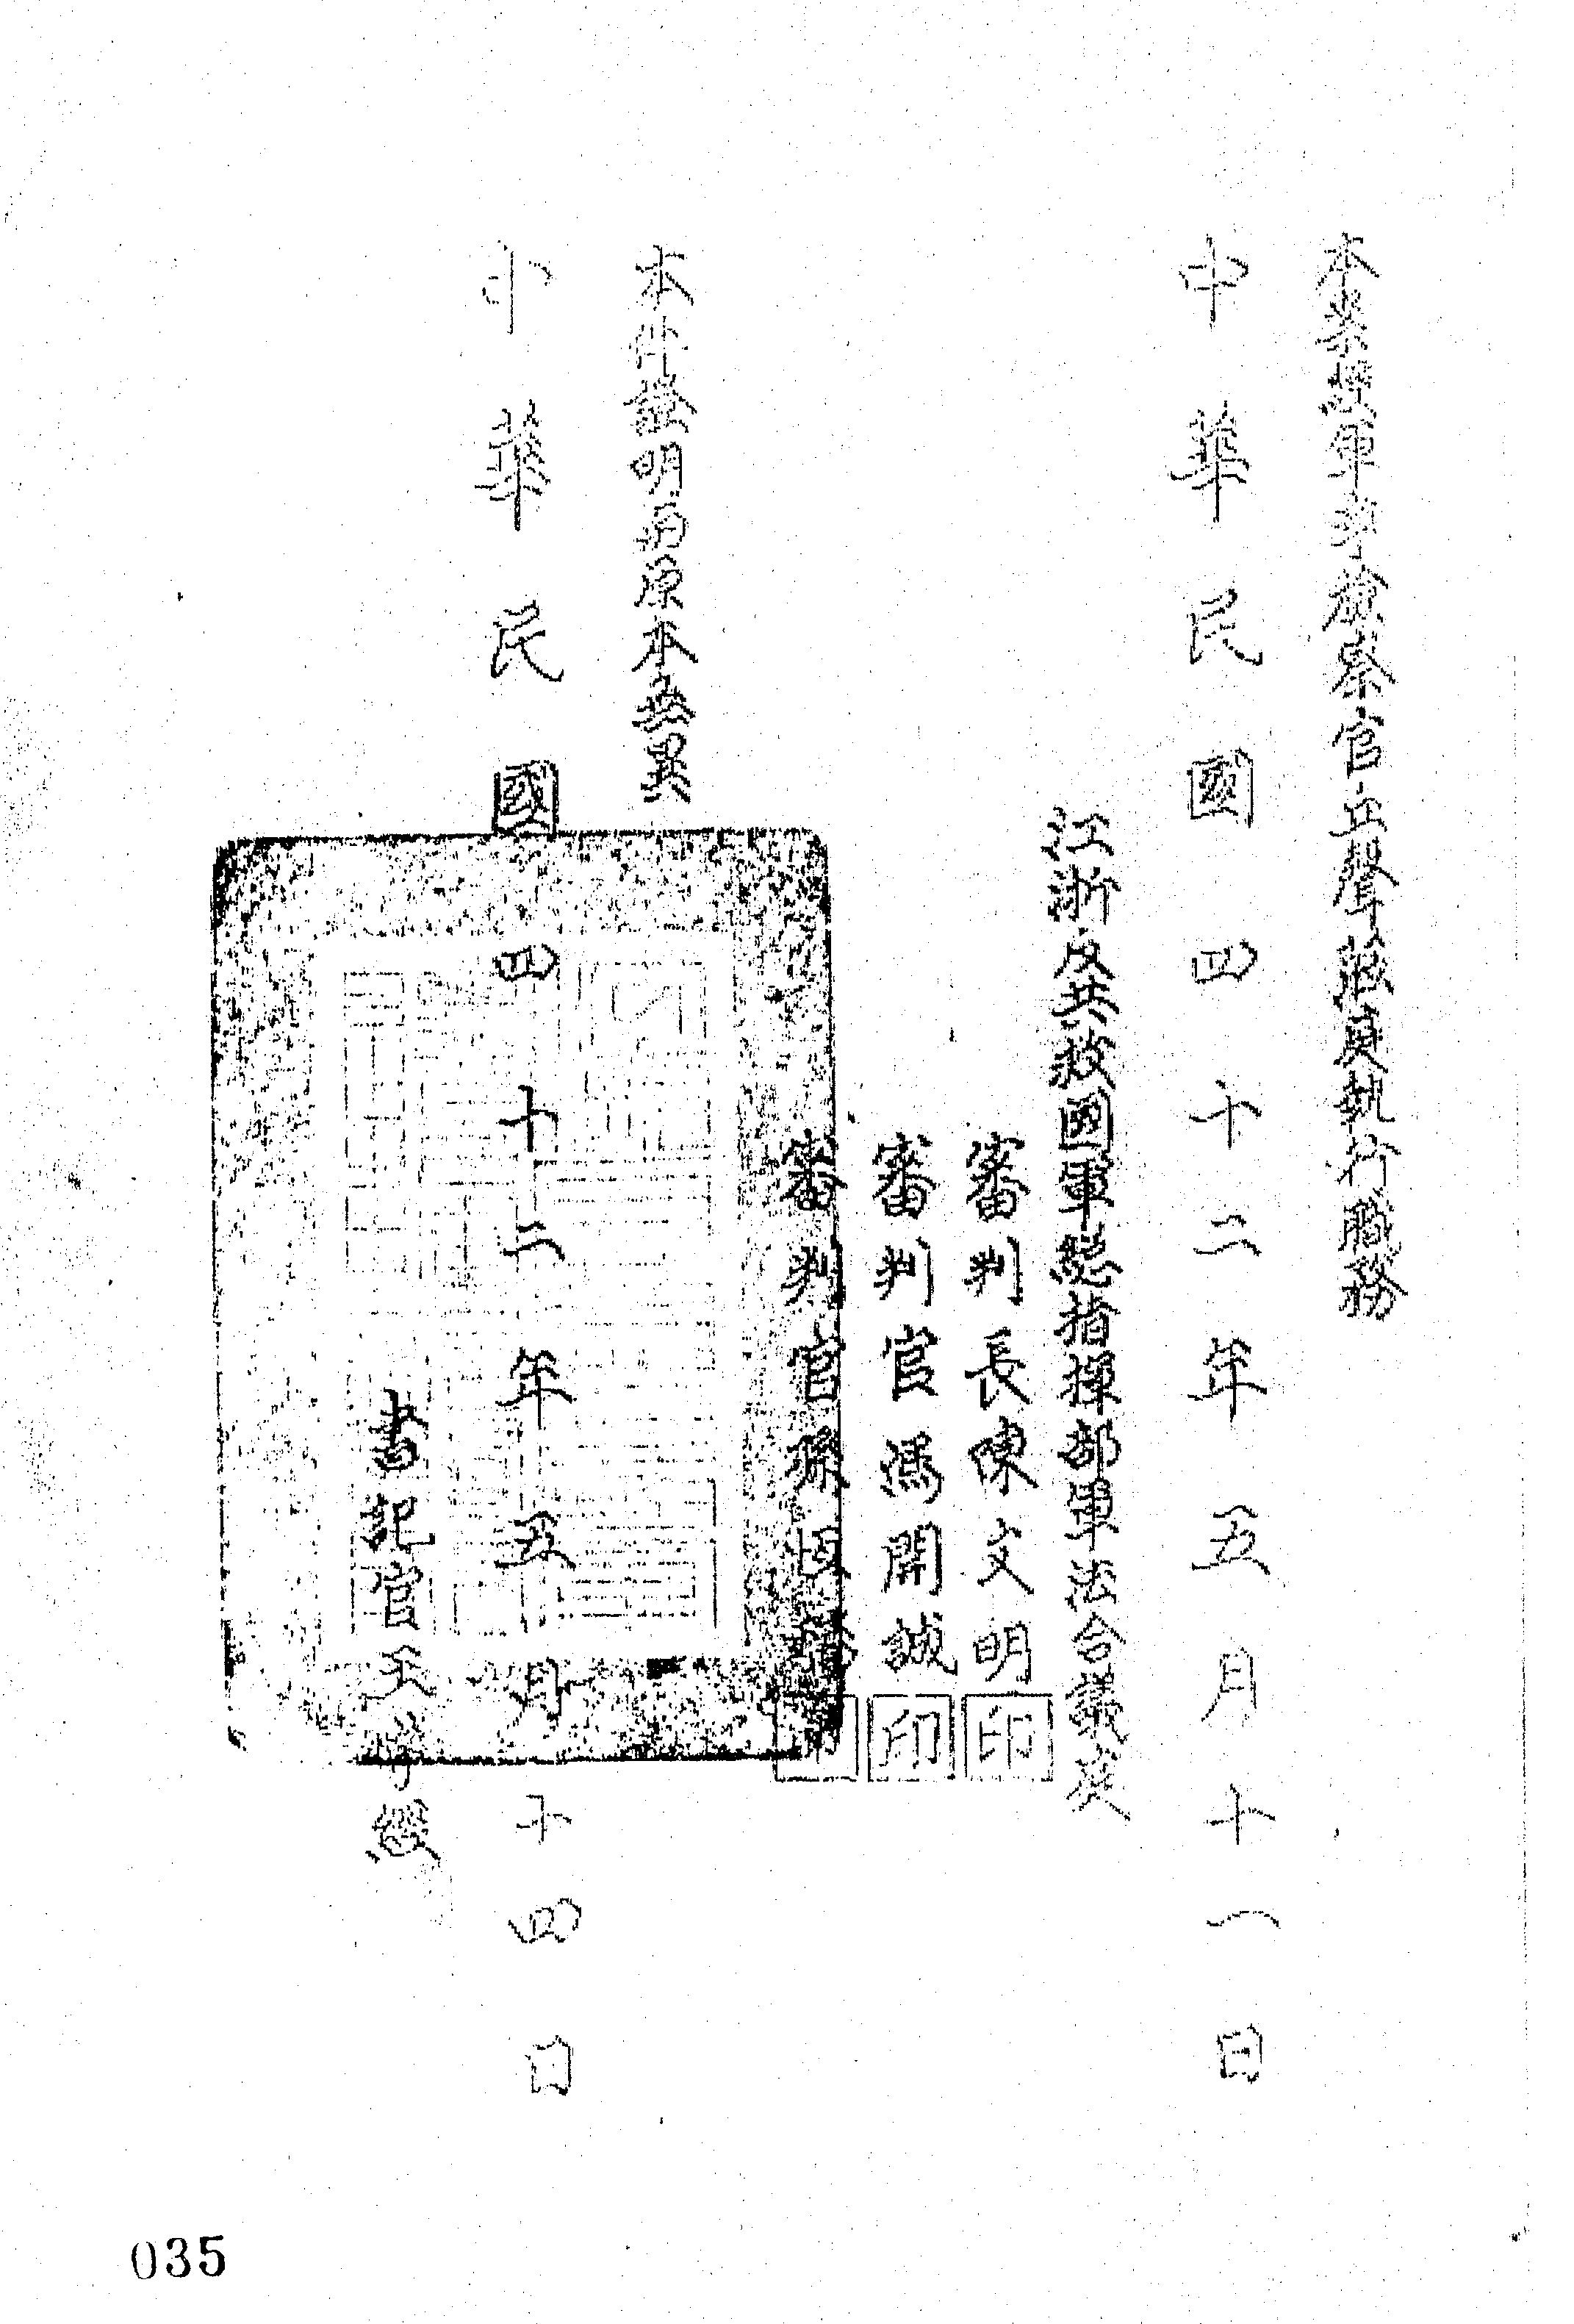 本案經軍事檢察官　聲蒞庭執行職務
中華民國四十二年五月十一日
江浙反共救國軍總指揮部軍法合議庭
審判長陳文明印
審判官馮開誠印
審判官孫　印
本件證明與原本無異
中華民國四十二年五月十四日
書記官
035